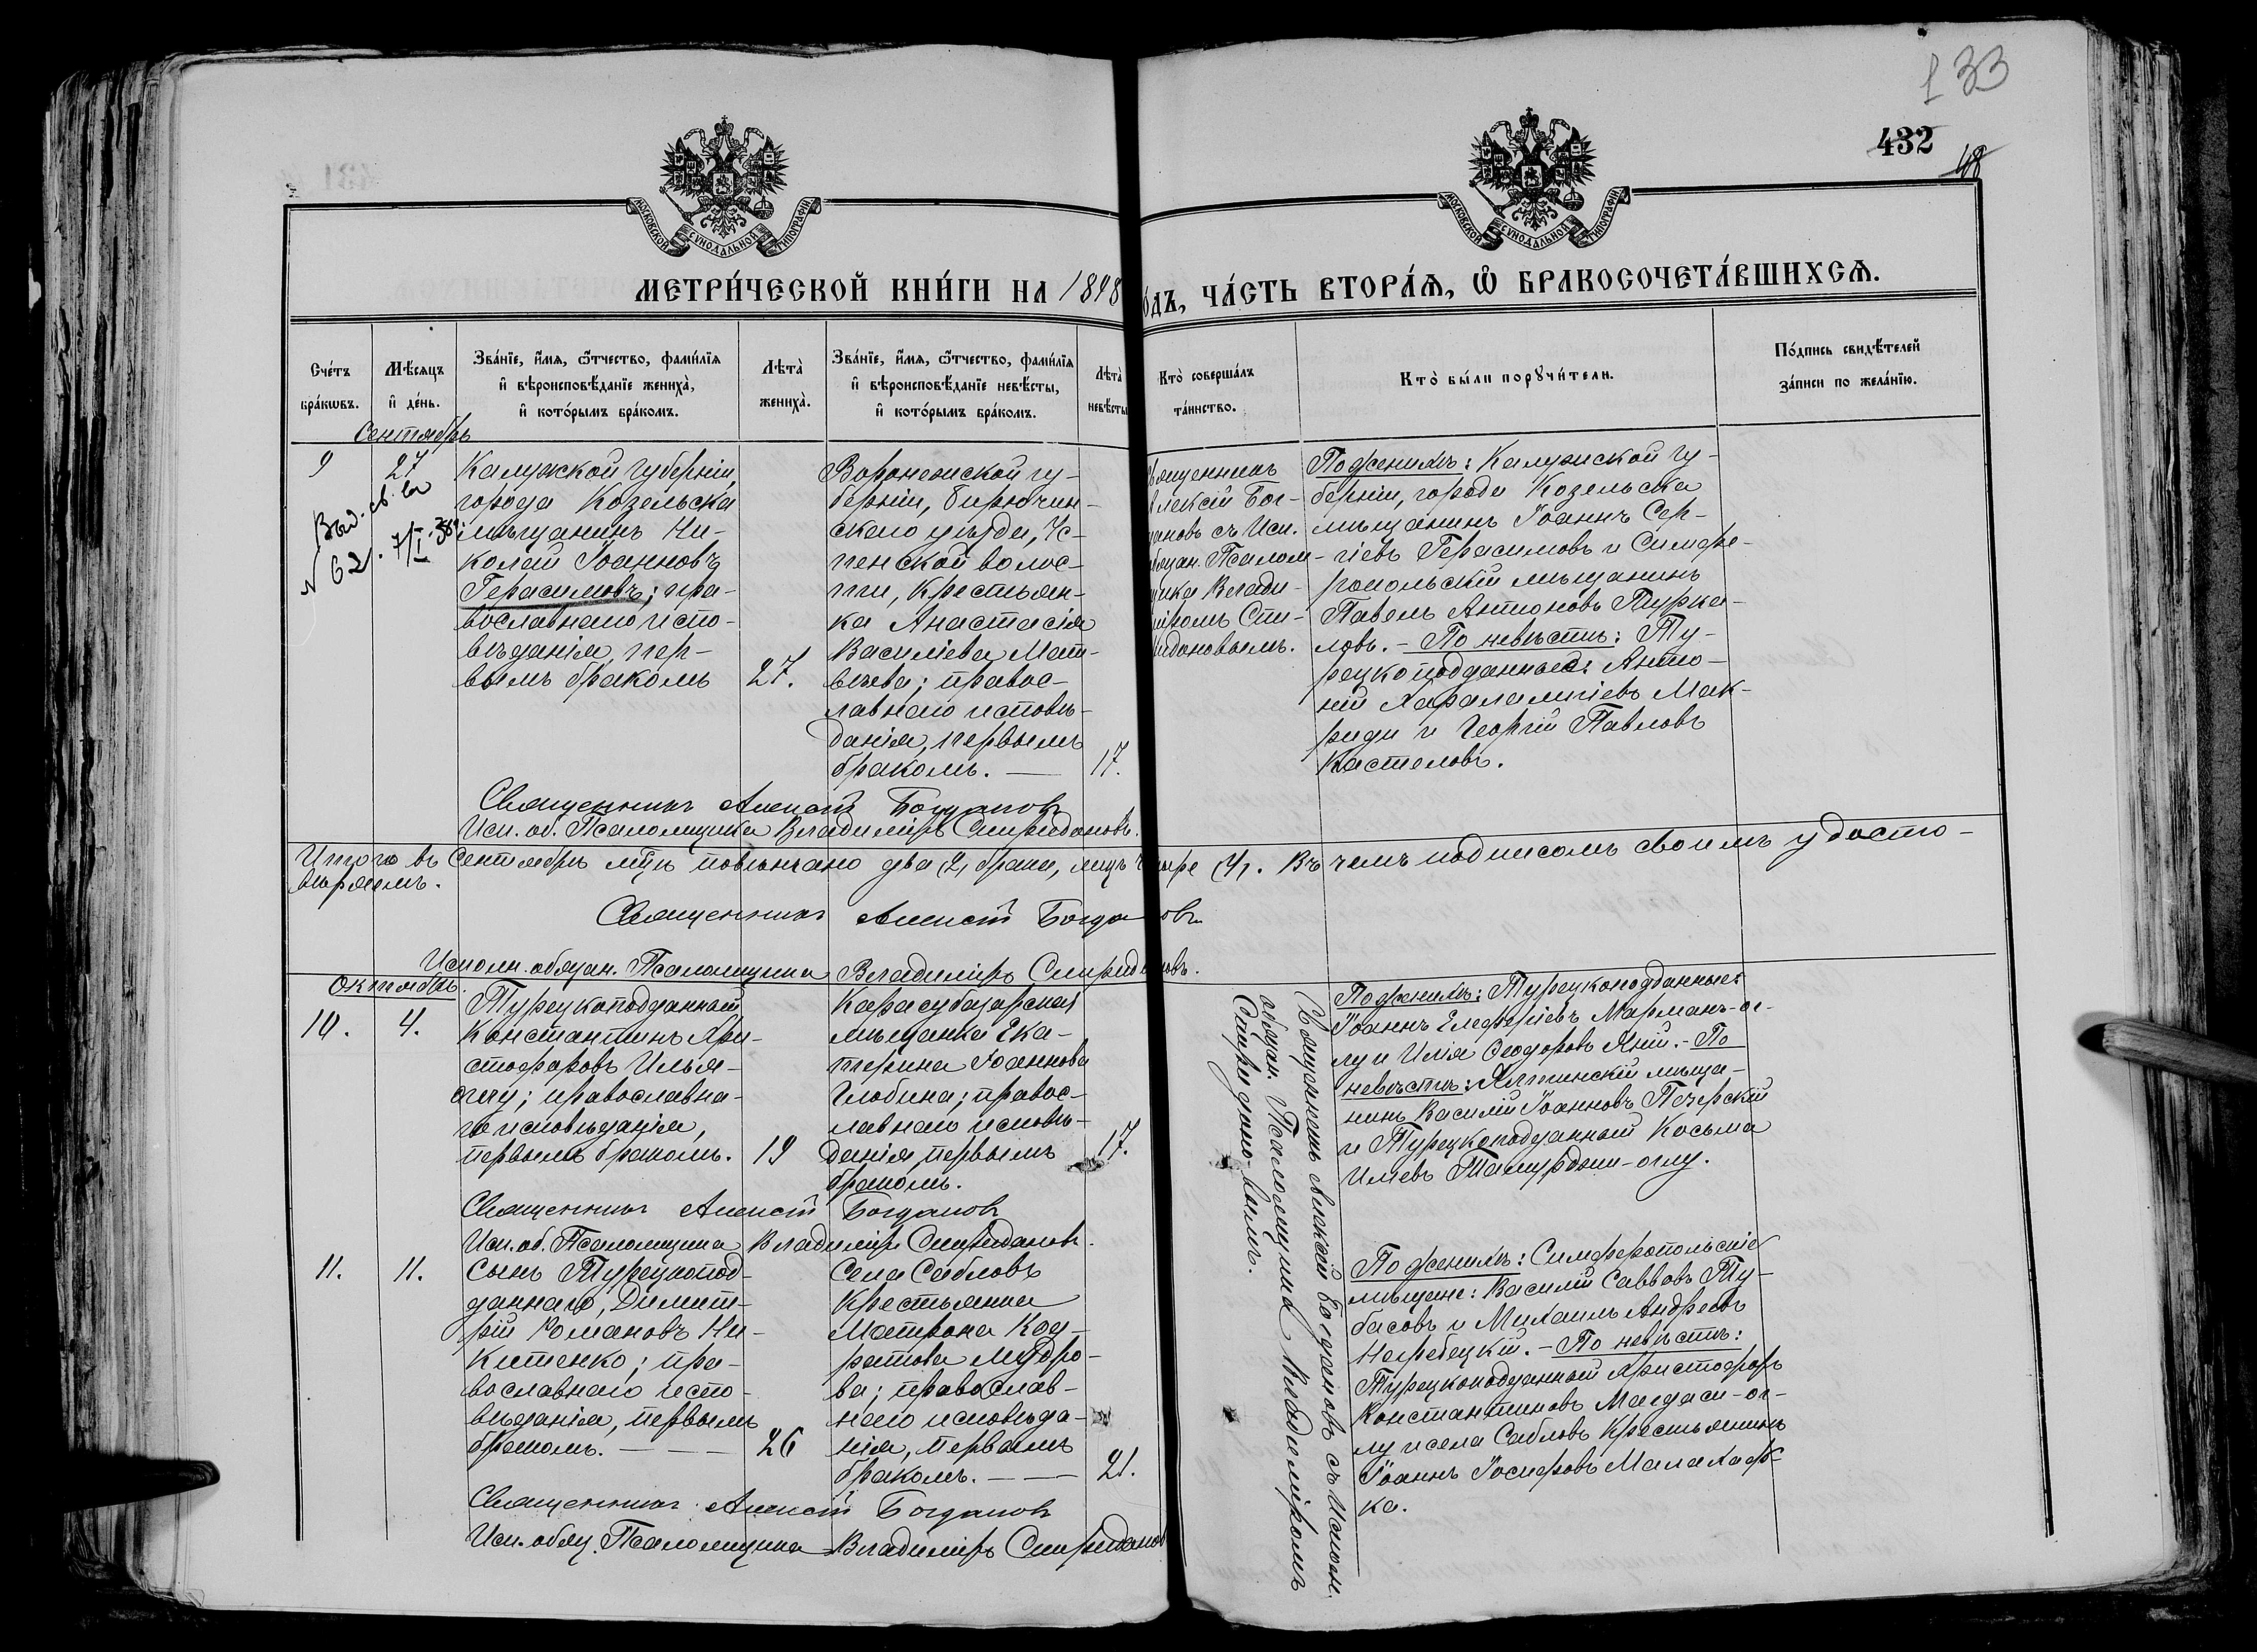 133
432
48
МОСКОВСКОЙ СѴНОДАЛЬНОЙ ТИПОГРАФІИ
МОСКОВСКОЙ СѴНОДАЛЬНОЙ ТИПОГРАФІИ
МЕТРИ́ЧЕСКОЙ КНИ́ГИ НА 1898
ОДЪ, ЧА́СТЬ ВТОРА́Ѧ, Ѿ БРАКОСОЧЕТА́ВШИХСѦ.
Сче́тъ
бра́кѡвъ.
Мѣ́сѧцъ
и҆ де́нь.
Зва́нїе, и҆́мѧ, ѻ҆́тчество, фами́лїѧ
и҆ вѣроисповѣ́данїе жениха̀,
и҆ кото́рымъ бра́комъ.
Лѣта̀
жениха̀.
Зва́нїе, и҆́мѧ, ѻ҆́тчество, фами́лїѧ
и҆ вѣроисповѣ́данїе невѣ́сты,
и҆ кото́рымъ бра́комъ.
Лѣта̀
невѣ́сты
Кто̀ соверша́лъ
та́инство.
Кто̀ бы́ли порꙋчи́тели.
По́дпись свидѣ́телей
за́писи по жела́нїю.
Сентябрь
9
27
Выд. св. за
N 62.
Калужской губерніи,
города Козельска
мѣщанинъ Ни-
колай Іоанновъ
Герасимовъ; пра-
вославнаго испо-
вѣданія, пер-
вымъ бракомъ
27.
Воронежской гу-
берніи, Бирючин-
скаго уѣзда, Ус-
пенской волос-
ти, крестьян-
ка Анастасія
Василіева Мат-
вѣева; правос-
лавнаго исповѣ-
данія, первымъ
бракомъ. —
17.
вященникъ
Алексій Бог-
дановъ съ Исп.
обязан. Псалом-
щика Влади-
міромъ Спи-
ридоновымъ.
По женихѣ: Калужской гу-
берніи, города Козельска
мѣщанинъ Іоаннъ Сер-
гіевъ Герасимовъ и Симфе-
ропольскій мѣщанинъ
Павелъ Антоновъ Турка-
ловъ. — По невѣстѣ: Ту-
рецкоподданные: Анто-
ній Харалампіевъ Мак-
риди и Георгій Павловъ
Кастеловъ.
Священникъ Алексій Богдановъ
Исп. об. Псаломщика Владиміръ Спиридоновъ.
Итого въ Сентябрѣ мцѣ повѣнчано два (2) брака, лицъ четыре (4). Въ чемъ подписомъ своимъ удосто-
вѣряемъ.
Священникъ Алексій Богдановъ
Исполн. обязан. Псаломщика Владиміръ Спиридоновъ.
Октябрь.
10.
4.
Турецкоподданный
Константинъ Хри-
стофоровъ Илья-
оглу; православна-
го исповѣданія,
первымъ бракомъ.
19
Карасубазарская
мѣщанка Ека-
терина Іоаннова
Глобина; правос-
лавнаго исповѣ-
данія первымъ
бракомъ.
17.
Священникомъ Алексій Богдановъ съ Исполн.
обязан. Псаломщика Владиміромъ
Спиридоновымъ.
По женихѣ: Турецкоподданные:
Іоаннъ Елефѳеріевъ Марманъ-ог-
лу и Илія Ѳеодоровъ Яній. — По
невѣстѣ: Ялтинскій мѣща-
нинъ Василій Іоанновъ Печерскій
и Турецкоподданный Косьма
Иліевъ -оглу.
Священникъ Алексій Богдановъ
Исп. об. Псаломщика Владиміръ Спиридоновъ.
11.
11.
Сынъ Турецкопод-
даннаго, Димит-
рій Романовъ Ни-
китенко; пра-
вославнаго испо-
вѣданія, первымъ
бракомъ. — — —
26
Села Сабловъ
крестьянка
Матрона Код-
ратова Мудро-
ва; православ-
наго исповѣда-
нія, первымъ
бракомъ. — —
21.
По женихѣ: Симферопольскіе
мѣщане: Василій Саввовъ Ту-
басовъ и Михаилъ Андреевъ
Негребецкій. — По невѣстѣ:
Турецкоподданный Христофоръ
Константиновъ Магдаси-ог-
лу и села Саблов крестьянинъ
Іоаннъ Іосифовъ Малахаф-
ка.
Священникъ Алексій Богдановъ
Исп. обяз. Псаломщика Владиміръ Спиридонов